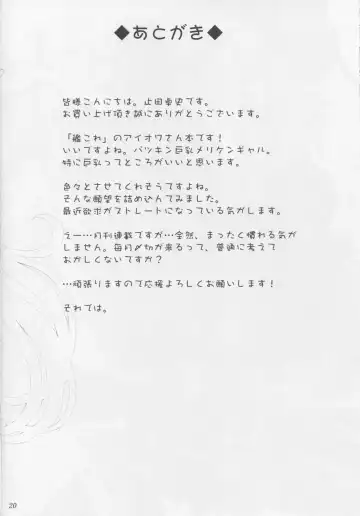 ◆あとがき◆
皆様こんにちは。止田卓史です。
お買い上げ頂き誠にありがとうございます。
「艦これ」のアイオワさん本です！
いいですよね。パツキン巨乳メリケンギャル。
特に巨乳ってところがいいと思います。
色々とさせてくれそうですよね。
そんな願望を詰め込んでみました。
最近欲求がストレートになっている気がします。
えー…月刊連載ですが…全然、まったく慣れる気が
しません。毎月〆切が来るって、普通に考えて
おかしくないですか？
…頑張りますので応援よろしくお願いします！
それでは。
20